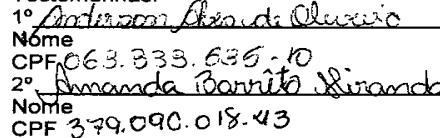 1º Anderson Alves de Oliveira
Nome
CPF 063.333.635-10
2º Amanda Barrêto Miranda
Nome
CPF 379.090.018-43